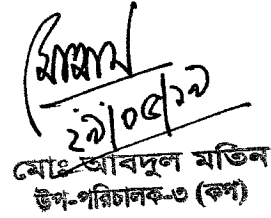 ২৯/০৫/১৯
মোঃ আবদুল মতিন
উপ-পরিচালক-৩ (কপা)